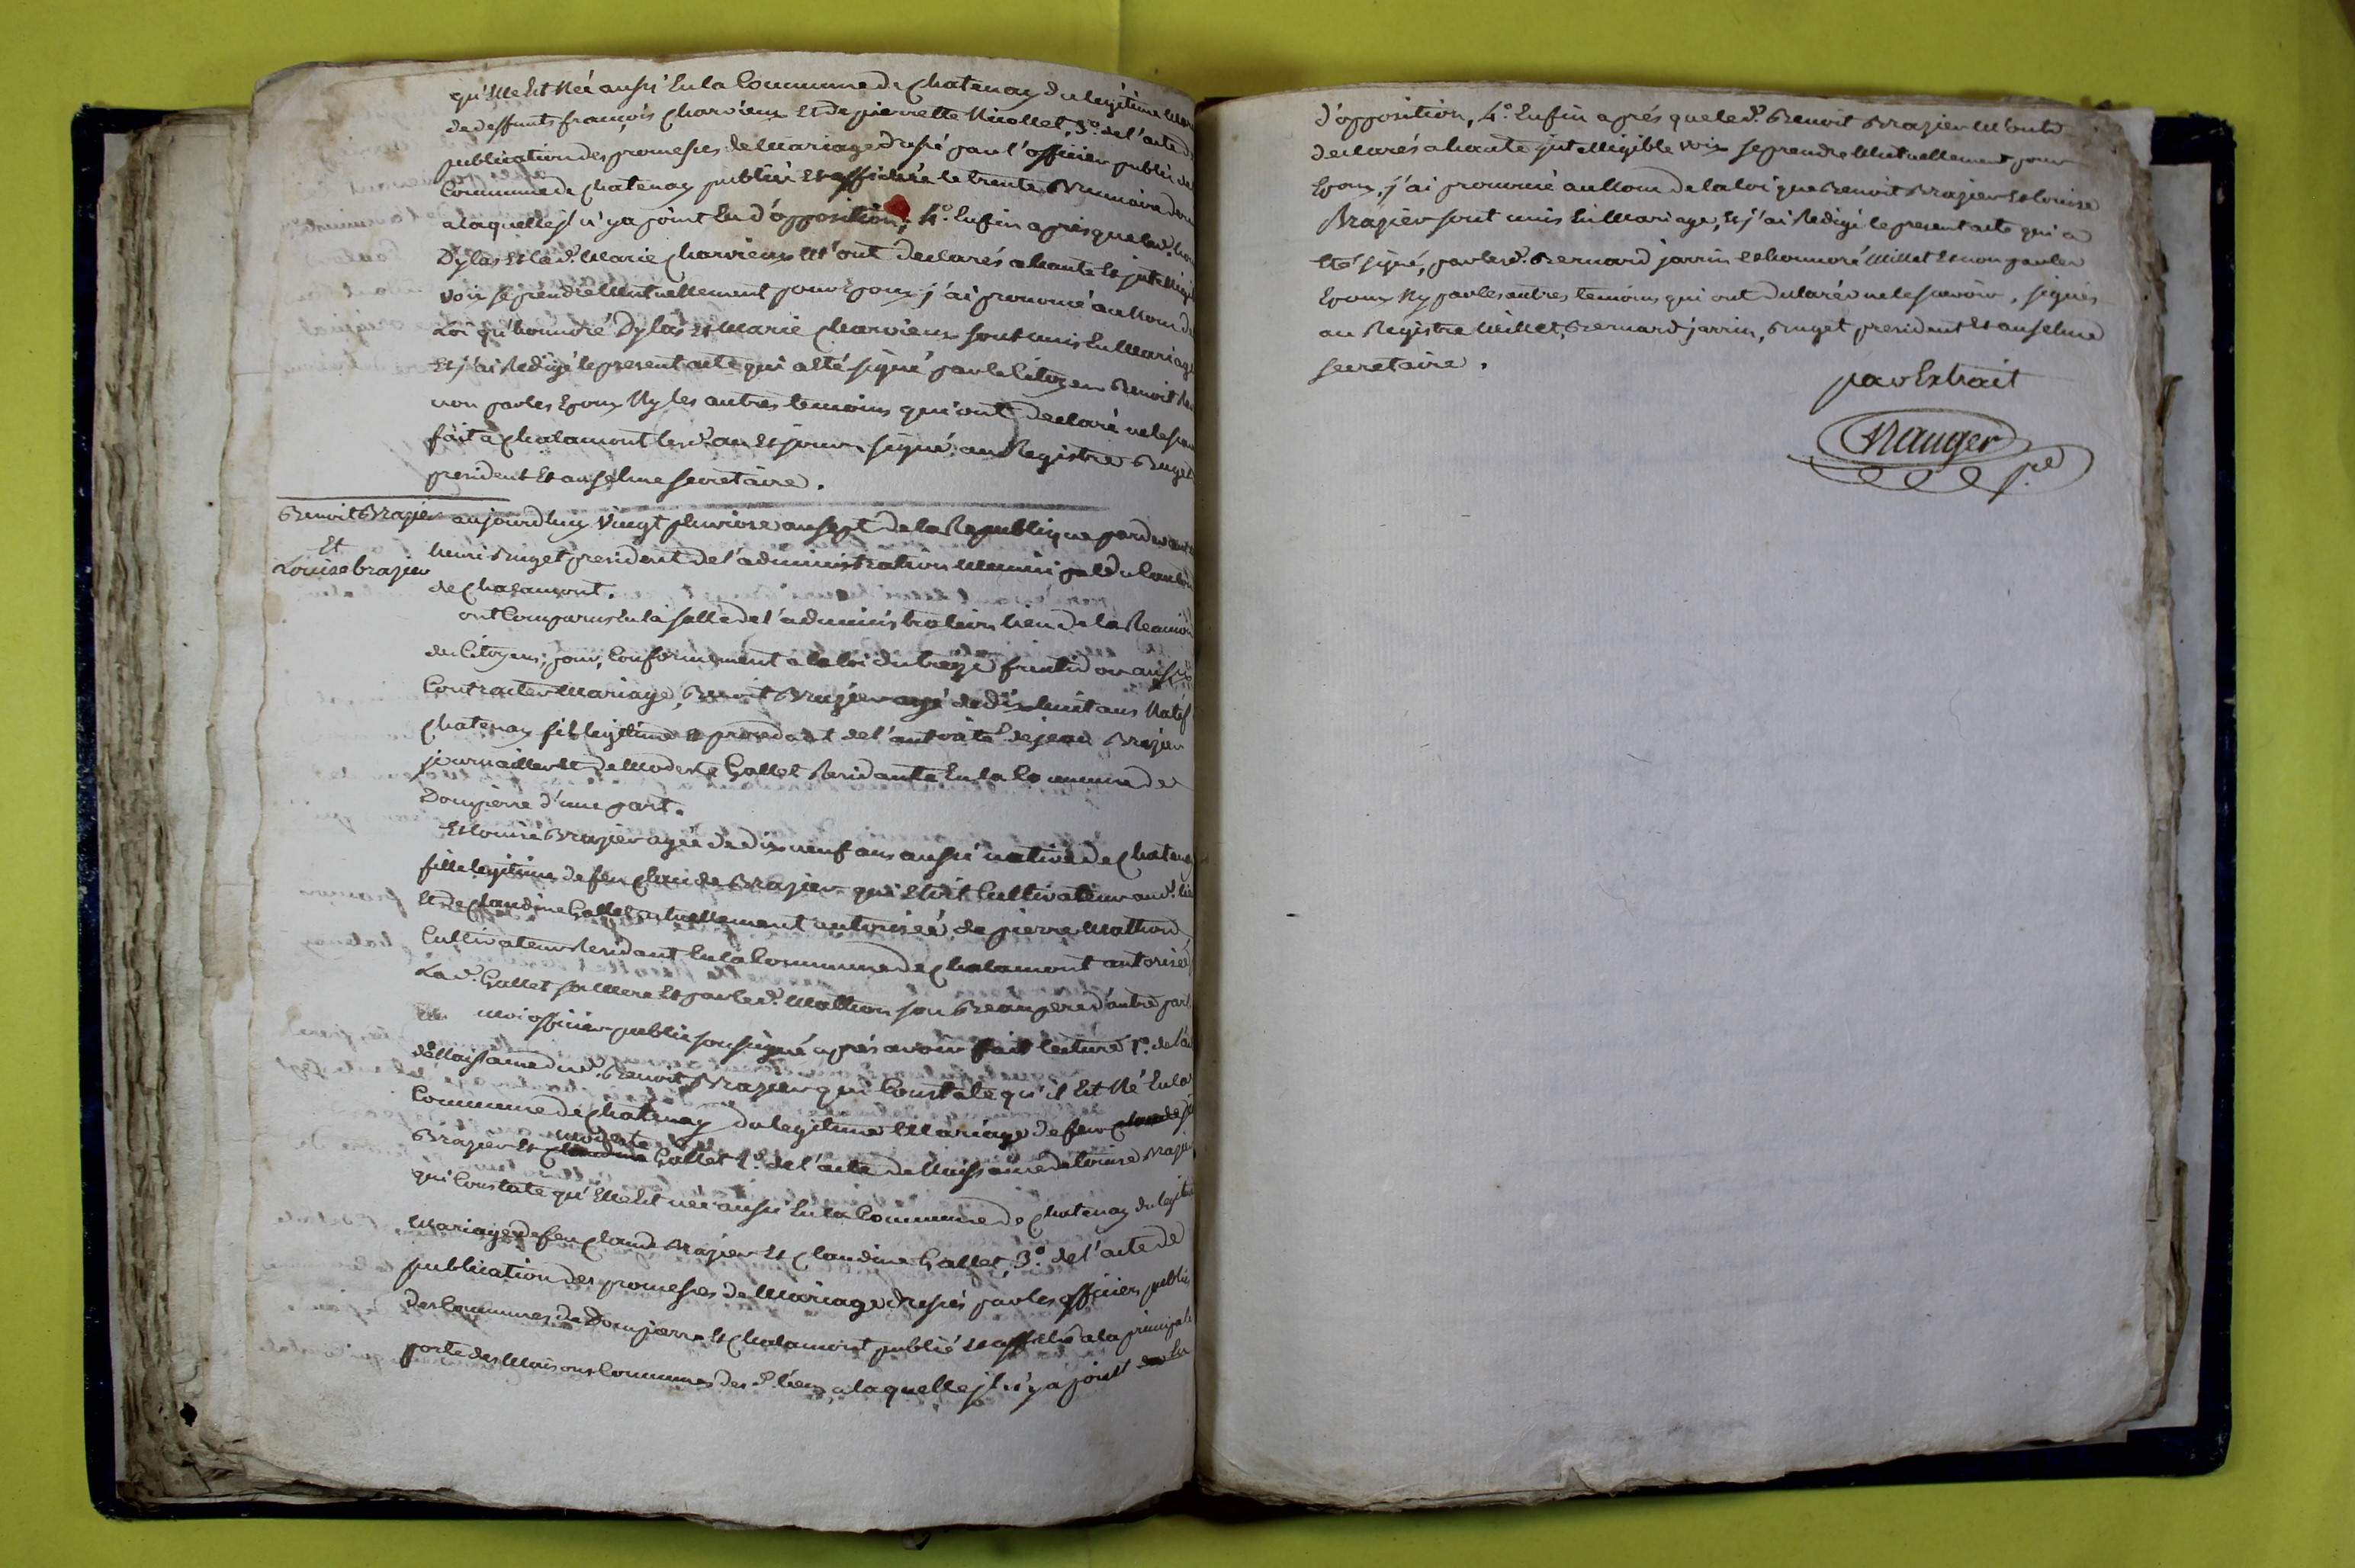 qu'Elle Est Née aussi En la Commune de Chatenay du legitime Mar
de deffunts françois Charvieux Et de pierrette Niollet, 3.º de l'acte de
publication des promesses de Mariage dressé par l'officier public de
Commune de Chatenay publiée Et affichée le trente Brumaire
a laquelle jl n'y a point Eu d'opposition, 4.º Enfin apres que led.
Dylas Et lad. Marie Charvieux M'ont declarés a haute Et jntelligi
voix se prendre Mutuellement pour Epoux j'ai prononcé au Nom de
Loi qu'honnoré Dylas Et Marie Charvieux sont unis En Mariage
Et j'ai Redigé le present acte qui a Eté signé par le Citoyen Benoit
non par les Epoux Ny les autres temoins qui ont declaré ne le
fait a Chalamont lesd. an Et jour, signé au Registre Buget
president Et anselme secretaire.
Benoit Brazier
Et
Louise brazier
aujourdhuy vingt pluviose an sept de la Republique pardevant
henri Buget president de l'administration Municipale du Canton
de Chalamont.
ont Comparus En la salle de l'administration lieu de la Reunion
des Citoyens, pour, Conformement a la loi du treize fructidor an six
Contracter Mariage, Benoit Brazier agé de dix huit ans Natif
Chatenay fils legitime Et procedant de l'autorité de jean Brazier
journaillier Et de Modeste Gallet Residante En la Commune de
Dompierre d'une part.
Et louise Brazier agée de dix neuf ans aussi native de Chatenay
fille legitime de feu Claude Brazier qui Etoit Cultivateur aud. lie
Et de Claudine Gallet actuellement autorisée de pierre Mathon
Cultivateur Residant En la Commune de Chalamont autorisée
Lad. Gallet sa Mere Et par led. Mathon son Beaupere d'autre part
moi officier public soussigné après avoir fait lecture 1.º de l'a
de Naissance dud. Benoit Brazier qui Constate qu'il Est Né En la
Commune de Chatenay du legitime Mariage de feu Claude
Brazier Et Claudine modeste Gallet 2.º de l'acte de Naissance de louise Brazier
qui Constate qu'Elle Est née aussi En la Commune de Chatenay du legitim
Mariage de feu Claude Brazier Et Claudine Gallet, 3.º de l'acte de
publication des promesses de Mariage dressés par les officiers publics
des Communes de Dompierre Et Chalamont publié Et affiché a la principale
porte des Maisons Communes desd. lieux, a laquelle jl n'y a point Eu
d'opposition, 4.º Enfin après que led. Benoit Brazier M'ont
declarés a haute jntelligible voix se prendre Mutuellement pour
Epoux, j'ai prononcé au Nom de la loi que Benoit Brazier Et louise
Brazier sont unis En Mariage, Et j'ai Redigé le present acte qui a
Eté signé, par lesd. Bernard jarrin Et honnoré Millet Et non par les
Epoux Ny par les autres temoins qui ont declarés ne le savoir, signés
au Registre Millet, Bernard jarrin, Buget president Et anselme
secretaire.
par Extrait
Nauger